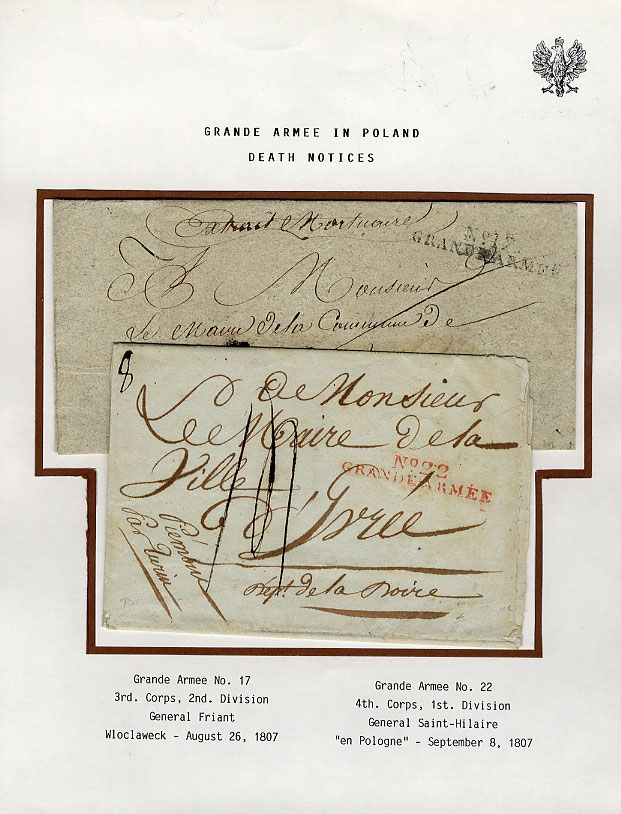 GRANDE ARMEE IN POLAND
DEATH NOTICES
Extrait Mortuaire
No. 17
GRANDE ARMÉE
A Monsieur
Le Maire de la Commune de
8
A Monsieur
Le Maire de la
Ville
No. 22
GRANDE ARMÉE
D'Ivrée
Piémont
Par Turin
Dépt. de la Doire
Grande Armee No. 17
3rd. Corps, 2nd. Division
General Friant
Wloclaweck - August 26, 1807
Grande Armee No. 22
4th. Corps, 1st. Division
General Saint-Hilaire
"en Pologne" - September 8, 1807